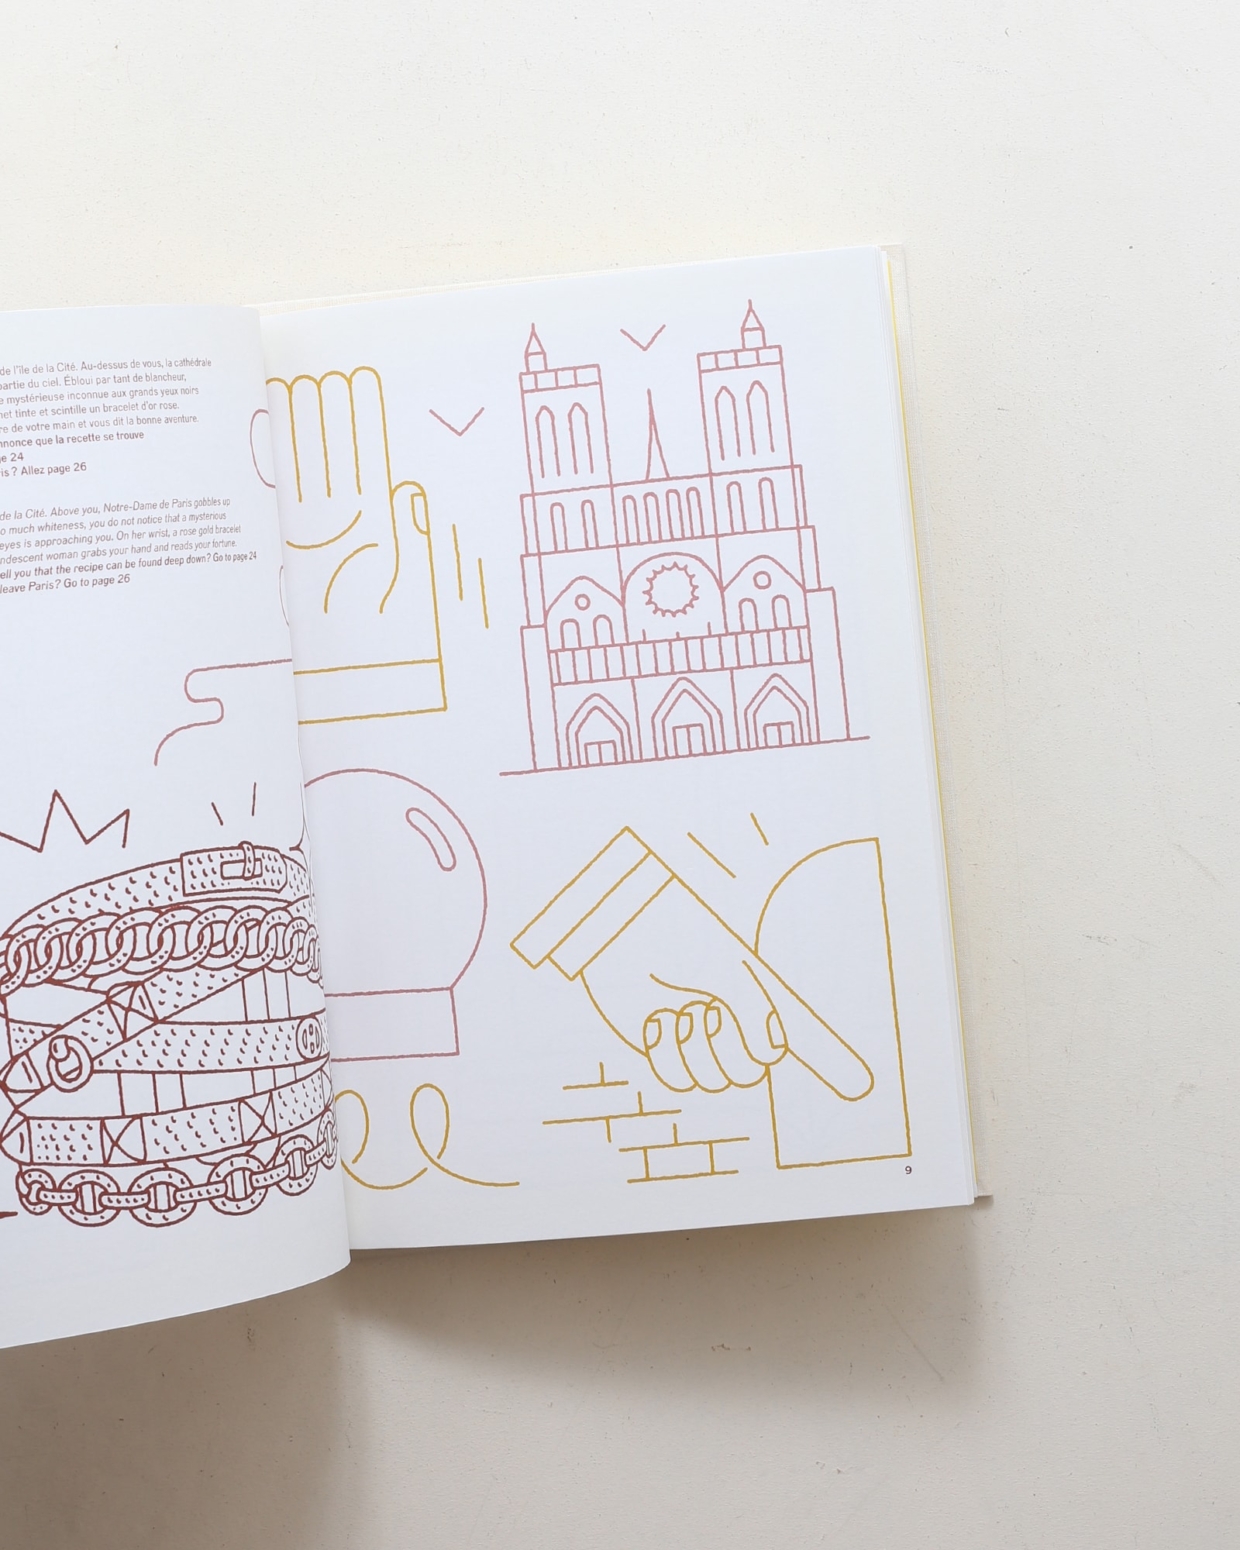 de l'île de la Cité. Au-dessus de vous, la cathédrale
partie du ciel. Ébloui par tant de blancheur,
e mystérieuse inconnue aux grands yeux noirs
net tinte et scintille un bracelet d'or rose.
re de votre main et vous dit la bonne aventure.
nnonce que la recette se trouve
ge 24
ris ? Allez page 26
de la Cité. Above you, Notre-Dame de Paris gobbles up
o much whiteness, you do not notice that a mysterious
eyes is approaching you. On her wrist, a rose gold bracelet
ndescent woman grabs your hand and reads your fortune.
ell you that the recipe can be found deep down? Go to page 24
leave Paris? Go to page 26
9